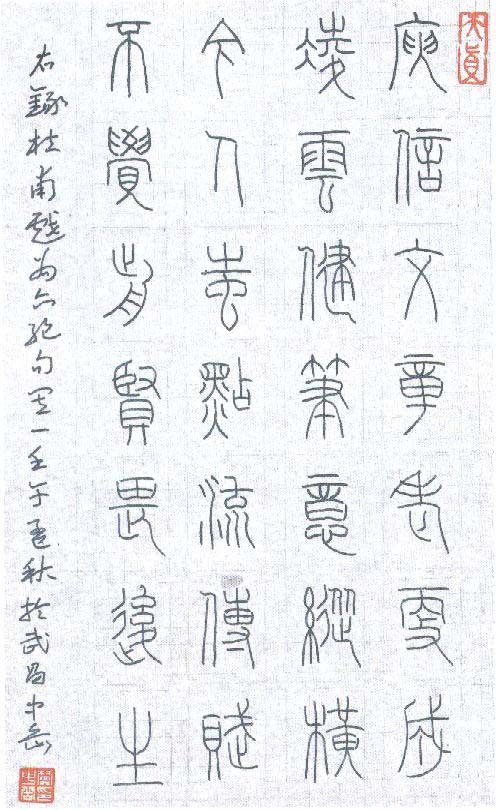 庾信文章老更成
凌雲健筆意縱橫
今人蚩點流傳賦
不覺前賢畏後生
右錄杜甫戲为六絕句其一壬午孟秋於武昌中岳